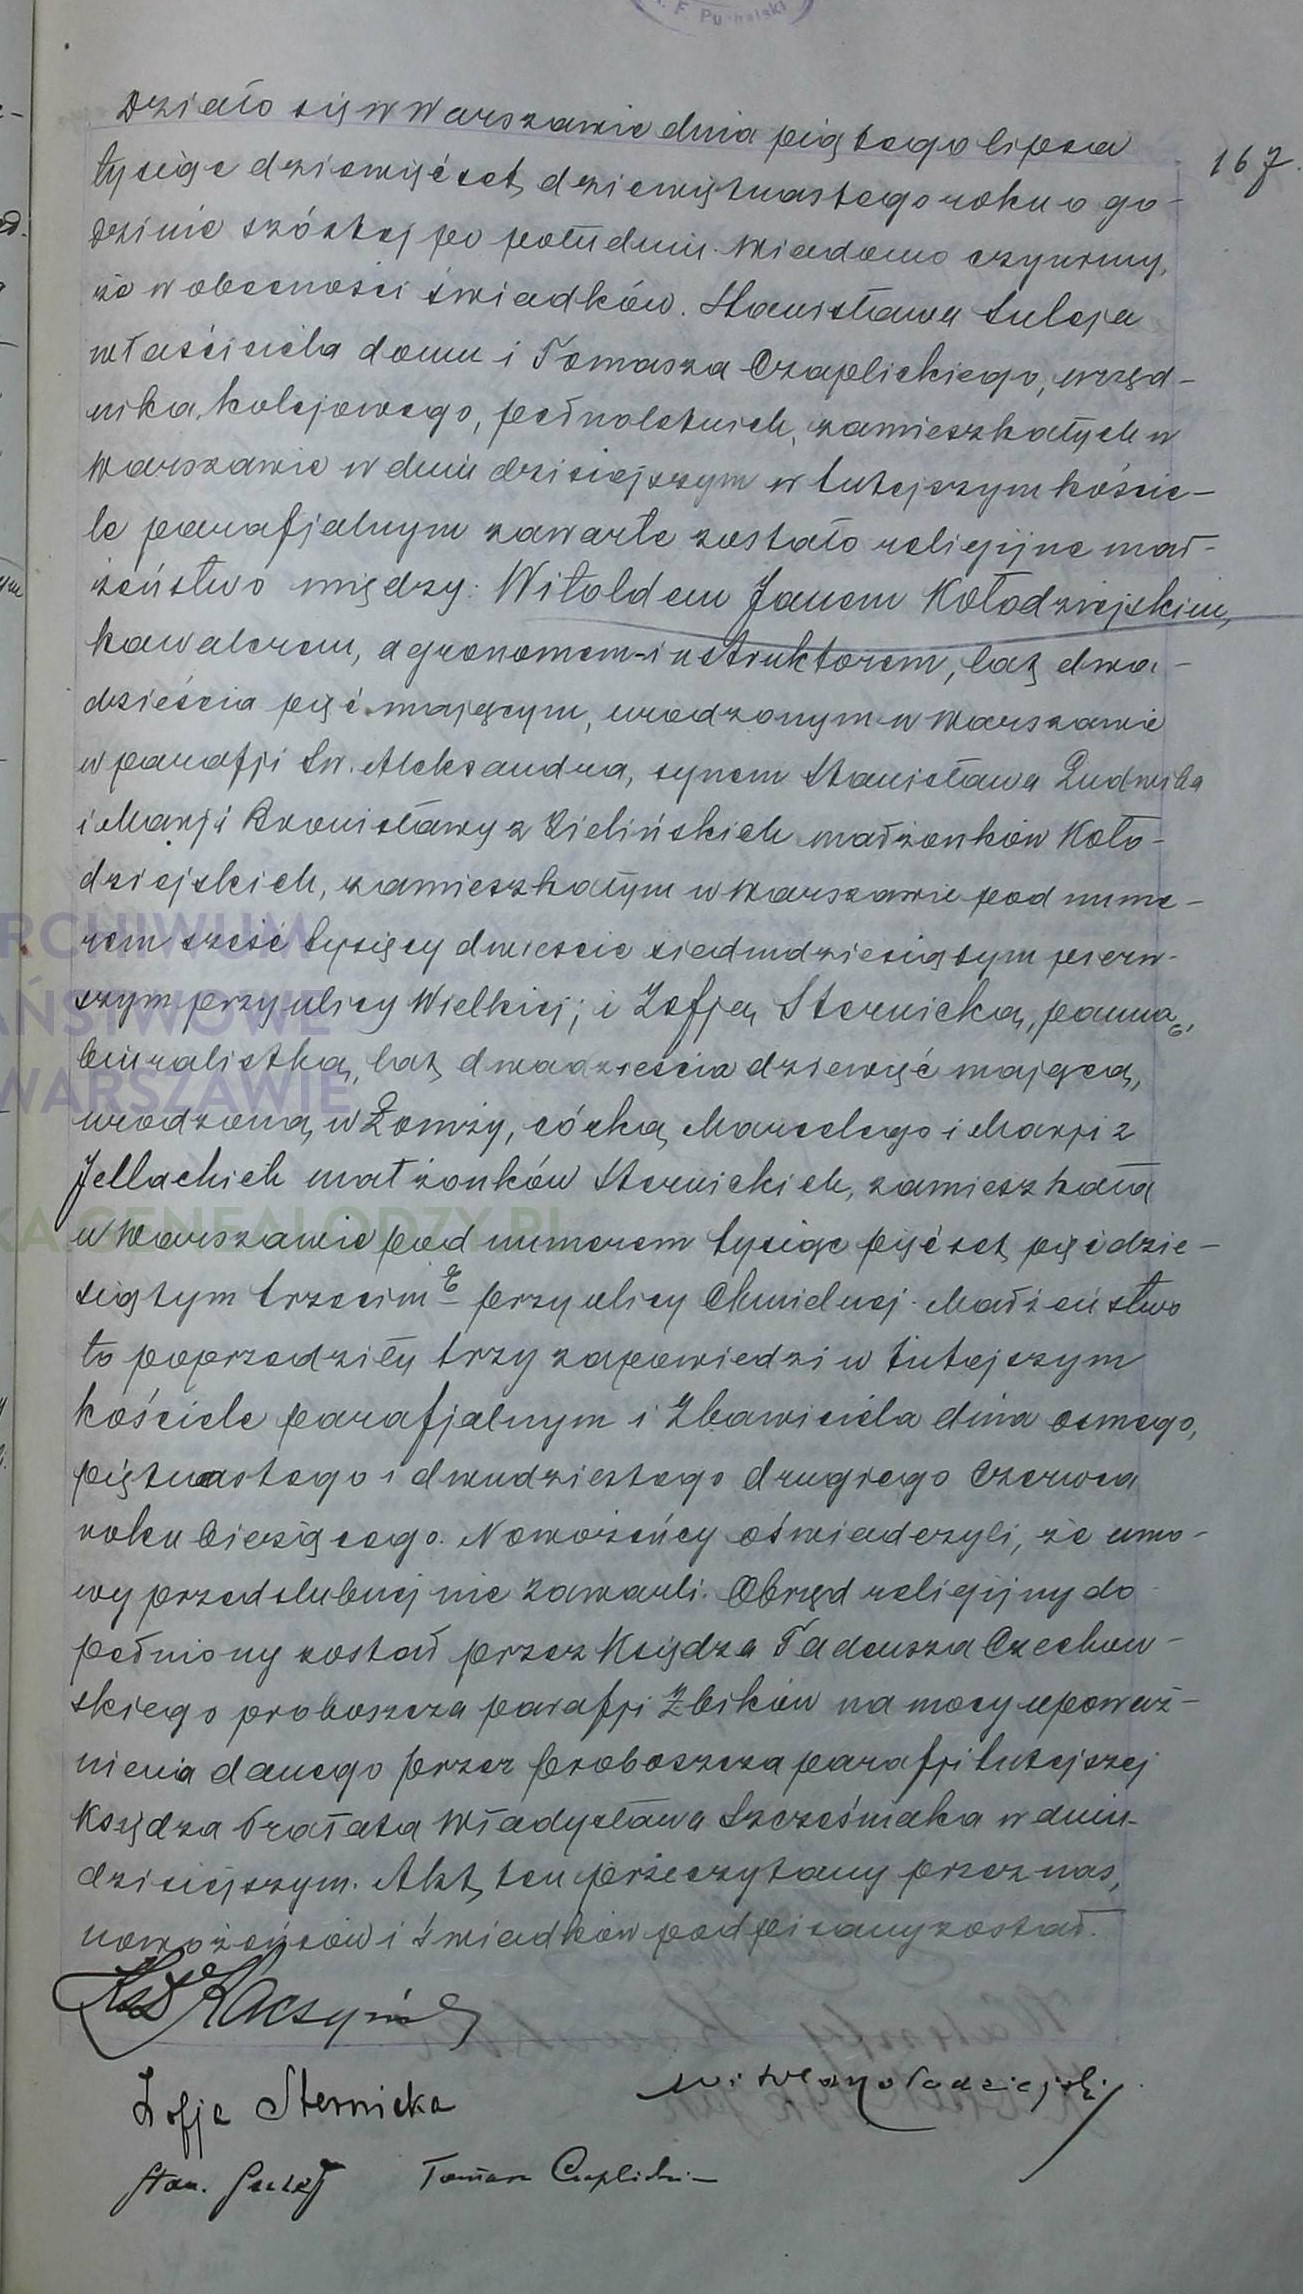 F. Puchalski
Działo się w Warszawie dnia piątego lipca
tysiąc dziewięćset dziewiętnastego roku o go-
dzinie szóstej po południu. Wiadomo czynimy,
że w obecności świadków. Stanisława Suleja
właściciela domu i Tomasza Czaplickiego, urzęd-
nika kolejowego, pełnoletnich, zamieszkałych w
Warszawie w dniu dzisiejszym w tutejszym koście-
le parafjalnym zawarte zostało religijne mał-
żeństwo między: Witoldem Janem Kołodziejskim,
kawalerem, agronomem-instruktorem, lat dwa-
dzieścia pięć mającym, urodzonym w Warszawie
w parafji Św. Aleksandra, synem Stanisława Ludwika
i Marji Bronisławy z Zielińskich małżonków Koło-
dziejskich, zamieszkałym w Warszawie pod nume-
rem sześć tysięcy dwieście siedmdziesiątym pierw-
szym przy ulicy Wielkiej; i Zofją Sternicką, panną,
biuralistką, lat dwadzieścia dziewięć mającą,
urodzoną w Łomży, córką Marcelego i Marji z
Jellachich małżonków Sternickich, zamieszkałą
w Warszawie pod numerem tysiąc pięćset pięćdzie-
siątym trzecim E przy ulicy Chmielnej. Małżeństwo
to poprzedziły trzy zapowiedzi w tutejszym
kościele parafjalnym i Zbawiciela dnia ósmego,
piętnastego i dwudziestego drugiego Czerwca
roku bieżącego. Nowożeńcy oświadczyli, że umo-
wy przedślubnej nie zawarli. Obrzęd religijny do
pełniony został przez Księdza Tadeusza Czechow-
skiego proboszcza parafji Żbików na mocy upoważ-
nienia danego przez Proboszcza parafji tutejszej
Księdza Prałata Władysława Szcześniaka w dniu
dzisiejszym. Akt ten przeczytany przez nas,
nowożeńców i świadków podpisany został.
167.
ARCHIWUM
PAŃSTWOWE
WARSZAWIE
GENEALODZY.PL
Zofja Sternicka
Witold Jan Kołodziejski
Stan. Sulej Tomasz Czaplicki